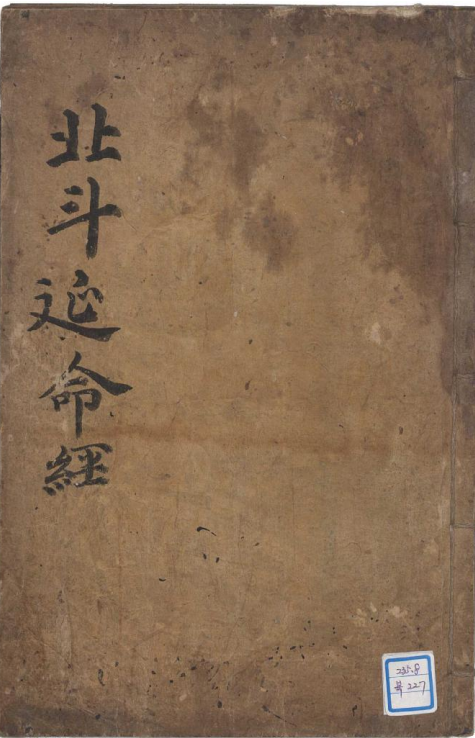 北斗延命經
235.8
북 227